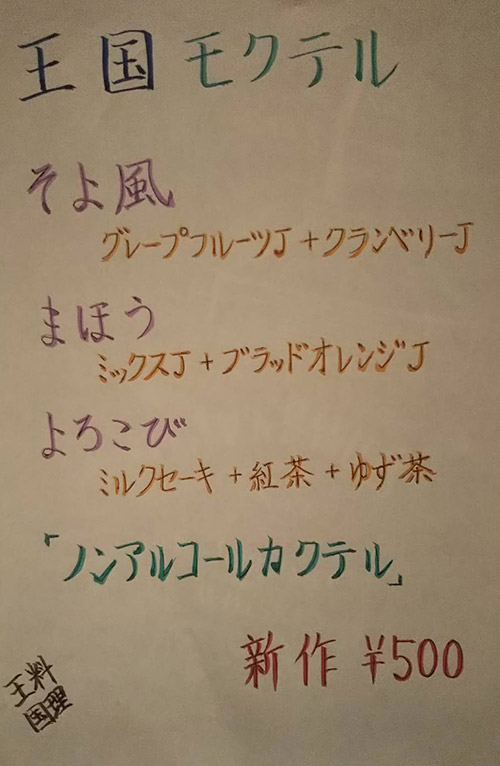 王国 モクテル
そよ風
グレープフルーツJ+クランベリーJ
まほう
ミックスJ+ブラッドオレンジJ
よろこび
ミルクセーキ+紅茶+ゆず茶
「ノンアルコールカクテル」
新作 ¥500
王料
国理